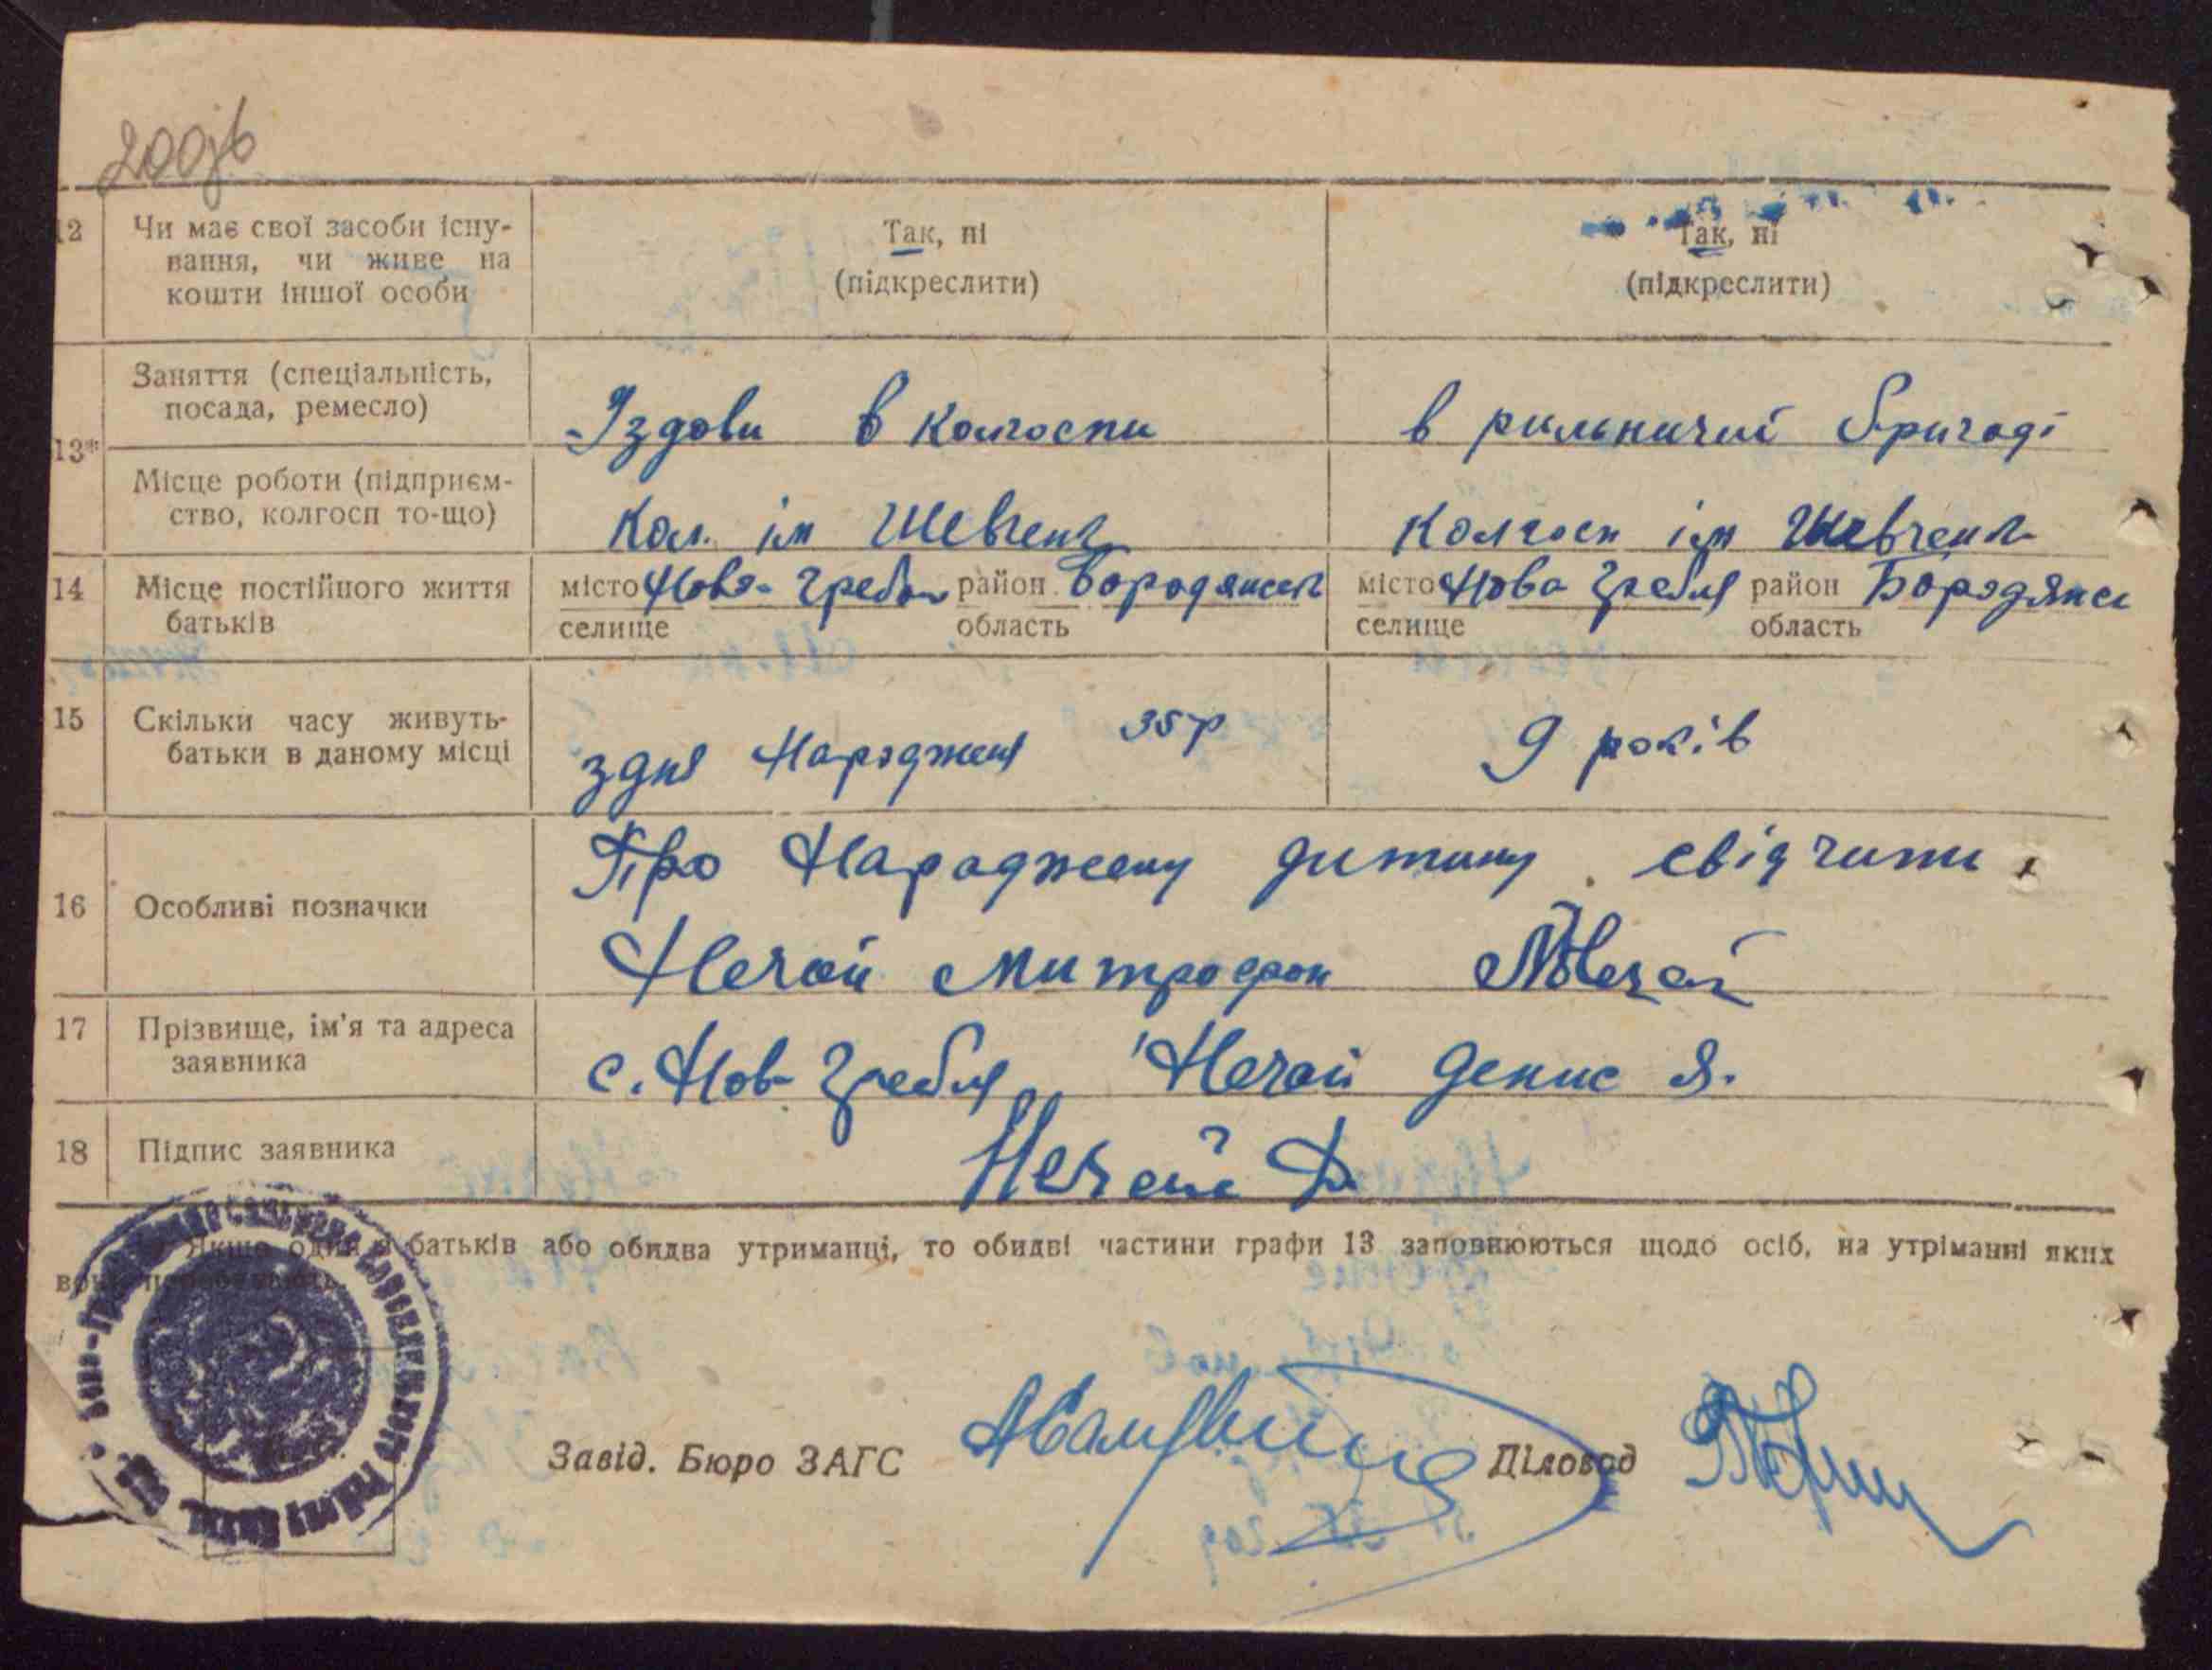 12 Чи має свої засоби існу-
вання, чи живе на
кошти іншої особи
Так, ні
(підкреслити)
Так, ні
(підкреслити)
13* Заняття (спеціальність,
посада, ремесло)
Їздови в колгоспи
в рильничий бригаді
Місце роботи (підприєм-
ство, колгосп то-що)
Кол. ім Шевченк
Колгосп ім Шевченк
14 Місце постійного життя
батьків
місто Нова Гребля район Бородянськ
селище область
місто Нова Гребля район Бородянс
селище область
15 Скільки часу живуть-
батьки в даному місці
з дня народженя 35 р
9 років
16 Особливі позначки
Про народжену дитину свідчити
Нечай Митрофон Нечай
17 Прізвище, ім'я та адреса
заявника
с. Нов Гребля Нечай Денис Я.
18 Підпис заявника
Нечай Д.
Якщо один з батьків або обидва утриманці, то обидві частини графи 13 заповнюються щодо осіб, на утріманні яких
вони перебувають.
Завід. Бюро ЗАГС
Діловод